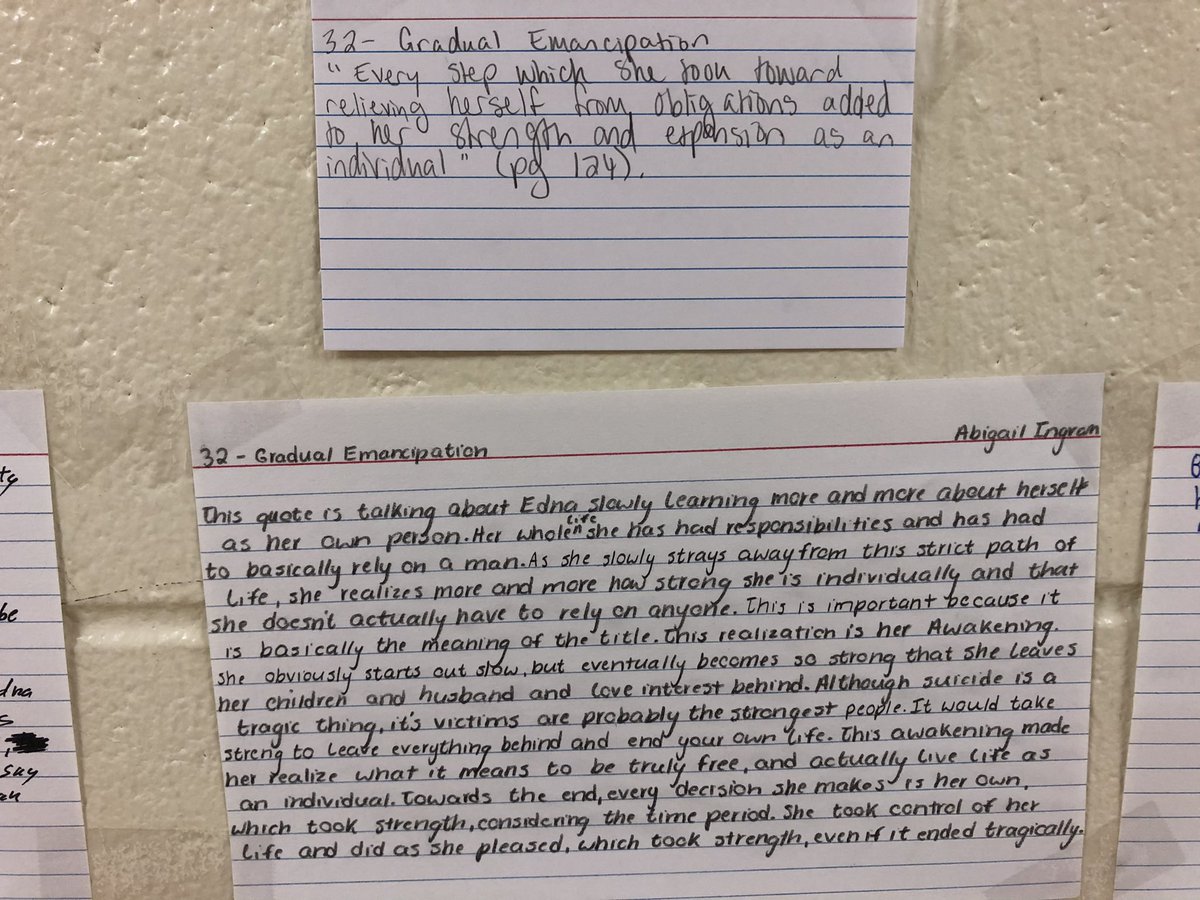 32- Gradual Emancipation
"Every step which she took toward
relieving herself from obligations added
to her strength and expansion as an
individual" (pg 124).
32 - Gradual Emancipation
Abigail Ingram
This quote is talking about Edna slowly learning more and more about herself
as her own person. Her whole life she has had responsibilities and has had
to basically rely on a man. As she slowly strays away from this strict path of
life, she realizes more and more how strong she is individually and that
she doesn't actually have to rely on anyone. This is important because it
is basically the meaning of the title. This realization is her Awakening.
She obviously starts out slow, but eventually becomes so strong that she leaves
her children and husband and love intrest behind. Although suicide is a
tragic thing, it's victims are probably the strongest people. It would take
streng to leave everything behind and end your own life. This awakening made
her realize what it means to be truly free, and actually live life as
an individual. Towards the end, every decision she makes is her own,
which took strength, considering the time period. She took control of her
life and did as she pleased, which took strength, even if it ended tragically.
ty
be
dna
s
say